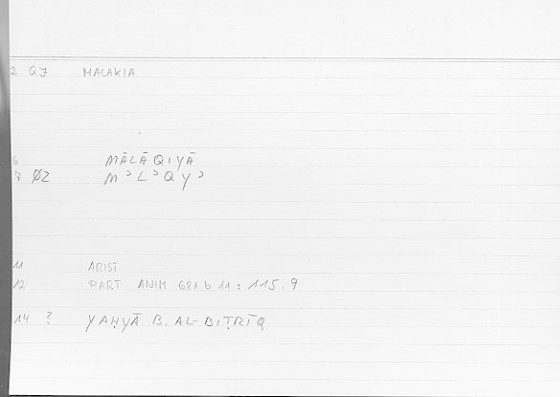 2 QJ MALAKIA
6 MĀLĀQIYĀ
8 ØZ MɔLɔQYɔ
11 ARIST
12 PART ANIM 681 b 11 : 115.9
14 ? YAḤYĀ B. AL-BIṬRĪQ